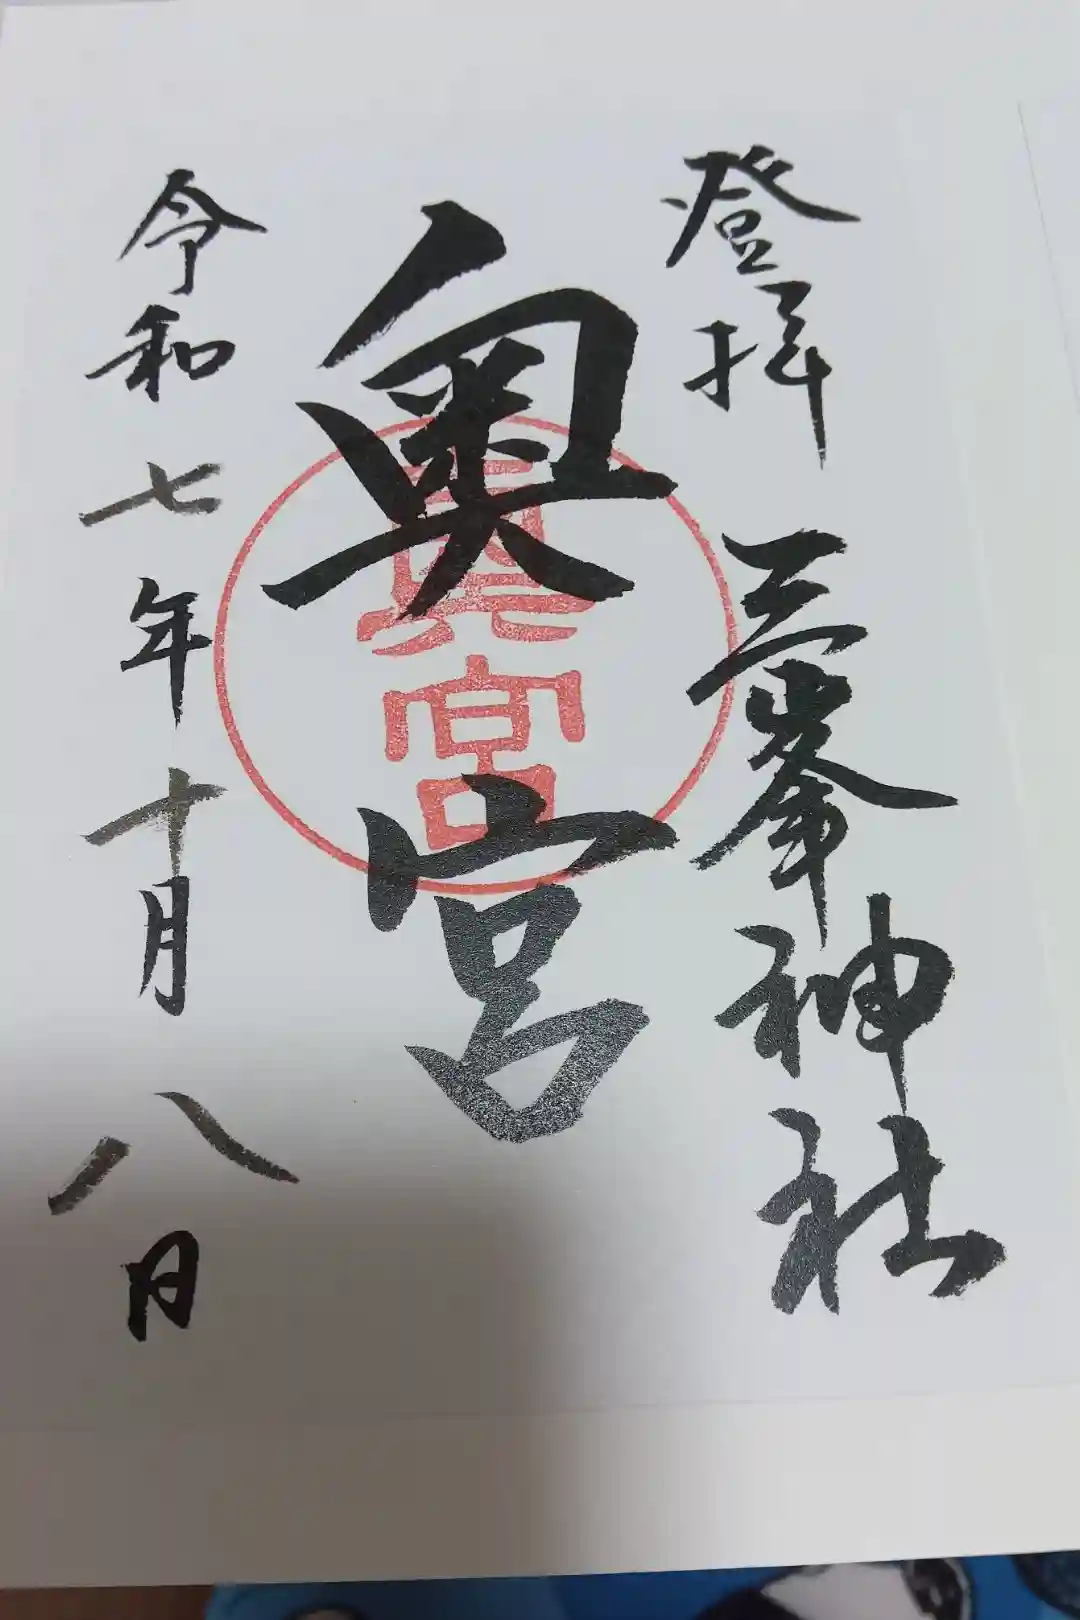 登拝 三峯神社
奥宮
奥宮
令和七年十月八日